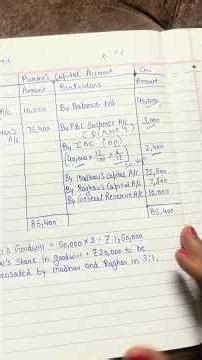 Puran's Capital Account
Cr.
Amount Particulars Amount
A/c 10,000 By Balance b/d 40,000
A/c 75,400 By P&L Suspense A/c 3,000
By I.O.C
(40,000 × 12/100 × 6/12) 2,400
By Madhav's Capital A/c 22,500
By Raghav's Capital A/c 7,500
By General Reserve A/c 10,000
85,400 85,400
Goodwill = 50,000 × 3 = ₹ 1,50,000
Share in goodwill = ₹30,000 to be
compensated by madhav and Raghav in 3:1.